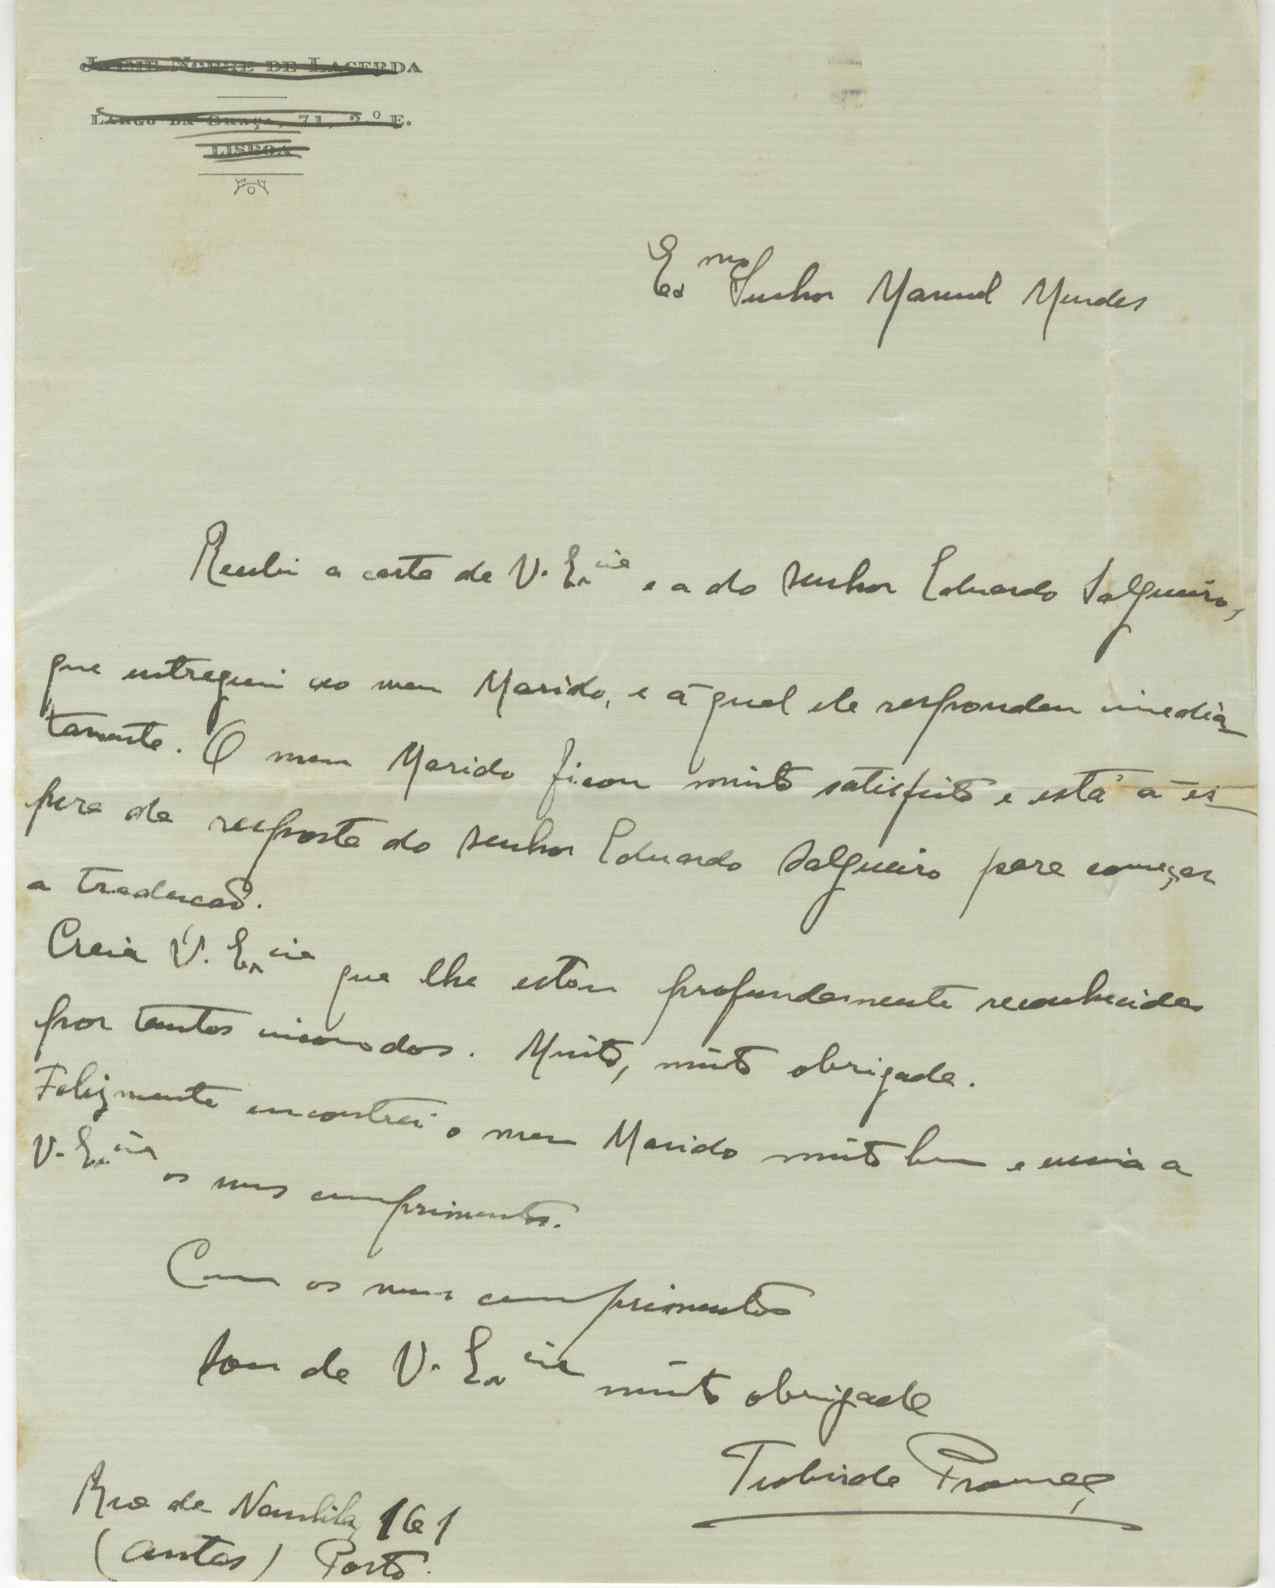 Jaime Nobre de Lacerda
Largo da Graça, 71, 2.º E.
Lisboa
Exmo Senhor Manuel Mendes
Recebi a carta de V. Excia e a do senhor Eduardo Salgueiro,
que entreguei ao meu Marido, e à qual ele respondeu imedia
tamente. O meu Marido ficou muito satisfeito e está à es
pera da resposta do senhor Eduardo Salgueiro para começar
a tradução.
Creia V. Excia que lhe estou profundamente reconhecida
por tantos incomodos. Muito, muito obrigada.
Felizmente encontrei o meu Marido muito bem e envia a
V. Excia os seus cumprimentos.
Com os meus cumprimentos
sou de V. Excia muito obrigada
Franco
Rua de Naulila, 161
(Antas) Porto.